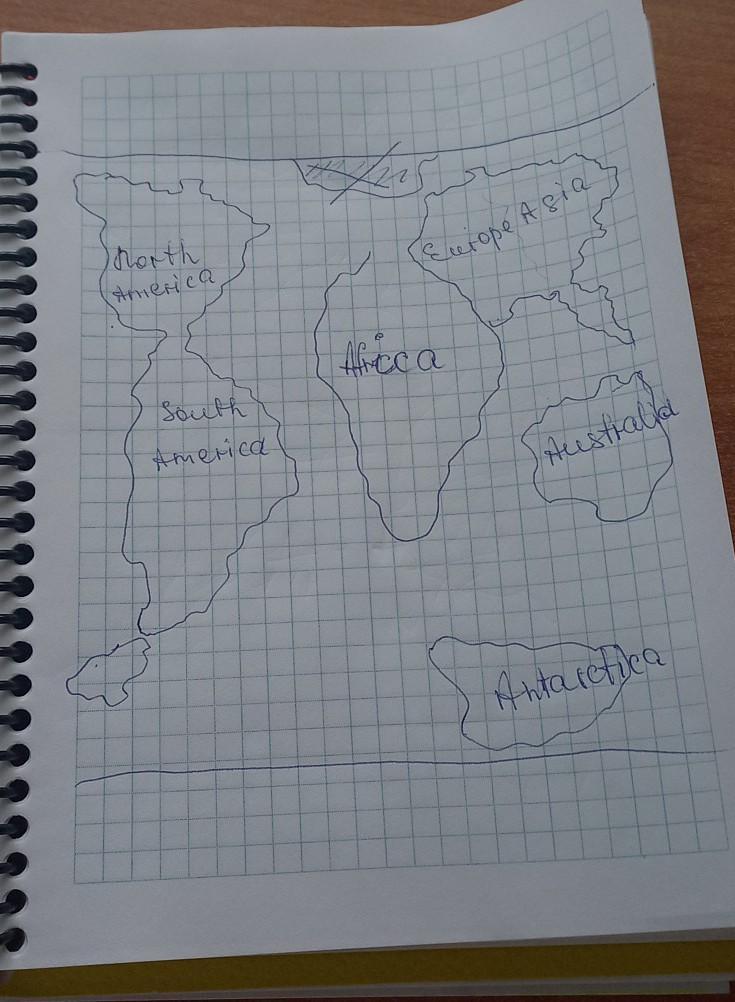 North
America
Europe Asia
Africca
South
America
Australia
Antarctica